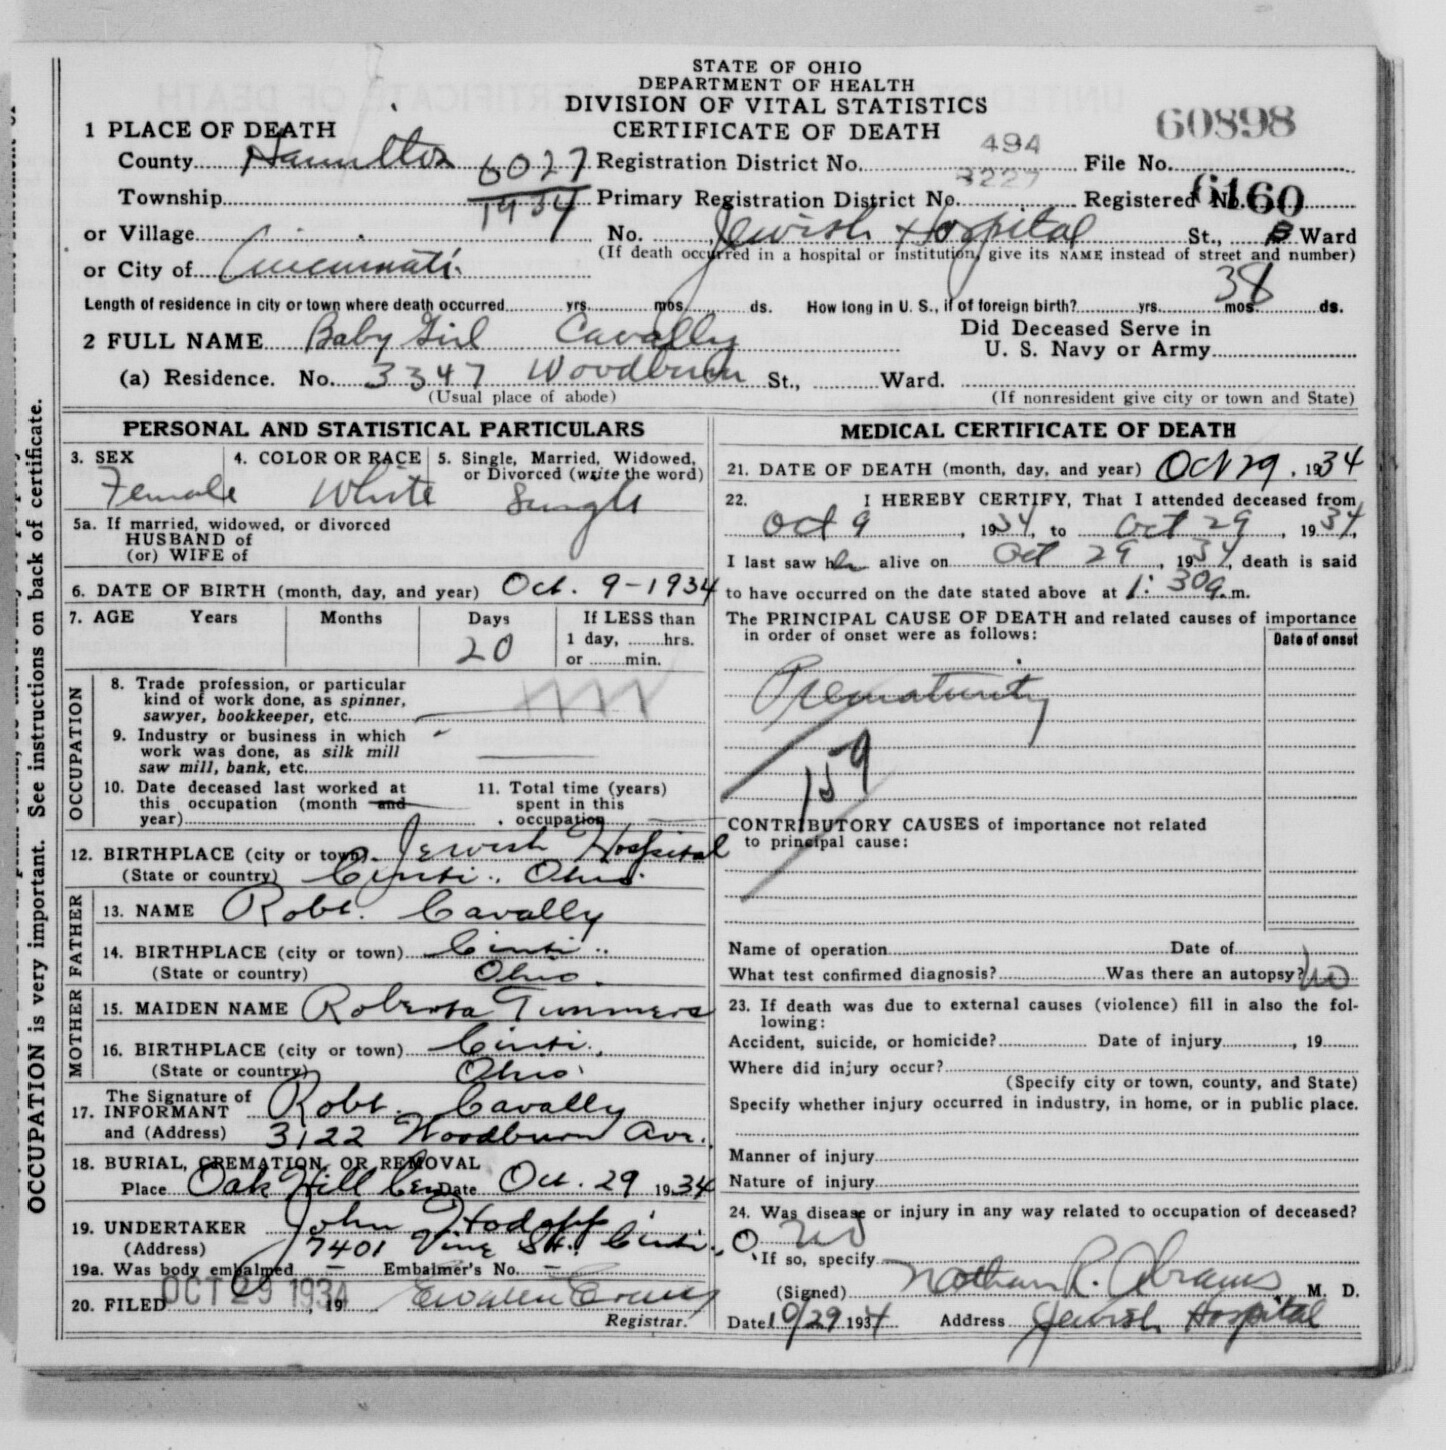 STATE OF OHIO
DEPARTMENT OF HEALTH
DIVISION OF VITAL STATISTICS
CERTIFICATE OF DEATH
60898
1 PLACE OF DEATH
County Hamilton 6027 Registration District No. 494 File No.
Township 1934 Primary Registration District No. 3227 Registered No. 6160
or Village No. Jewish Hospital St., Ward
(If death occurred in a hospital or institution, give its NAME instead of street and number)
or City of Cincinnati
38
Length of residence in city or town where death occurred yrs. mos. ds. How long in U. S., if of foreign birth? yrs. mos. ds.
2 FULL NAME Baby Girl Cavally Did Deceased Serve in
U. S. Navy or Army
(a) Residence. No. 3347 Woodburn St., Ward.
(Usual place of abode) (If nonresident give city or town and State)
OCCUPATION is very important. See instructions on back of certificate.
PERSONAL AND STATISTICAL PARTICULARS
3. SEX 4. COLOR OR RACE 5. Single, Married, Widowed,
or Divorced (write the word)
Female White Single
5a. If married, widowed, or divorced
HUSBAND of
(or) WIFE of
6. DATE OF BIRTH (month, day, and year) Oct. 9-1934
7. AGE Years Months Days If LESS than
20 1 day, hrs.
or min.
OCCUPATION
8. Trade profession, or particular
kind of work done, as spinner,
sawyer, bookkeeper, etc.
9. Industry or business in which
work was done, as silk mill
saw mill, bank, etc.
10. Date deceased last worked at 11. Total time (years)
this occupation (month and spent in this
year) occupation
12. BIRTHPLACE (city or town) Jewish Hospital
(State or country) Cinti., Ohio.
FATHER
13. NAME Robt. Cavally
14. BIRTHPLACE (city or town) Cinti.
(State or country) Ohio.
MOTHER
15. MAIDEN NAME Roberta Timmers
16. BIRTHPLACE (city or town) Cinti.,
(State or country) Ohio.
The Signature of
17. INFORMANT Robt. Cavally
and (Address) 3122 Woodburn Ave.
18. BURIAL, CREMATION, OR REMOVAL
Place Oak Hill Cem Date Oct. 29 1934
19. UNDERTAKER John Hodapp
(Address) 7401 Vine St. Cinti., O.
19a. Was body embalmed – Embalmer's No. –
20. FILED OCT 29 1934, 19
Registrar.
MEDICAL CERTIFICATE OF DEATH
21. DATE OF DEATH (month, day, and year) Oct 29, 1934
22. I HEREBY CERTIFY, That I attended deceased from
Oct 9, 1934, to Oct 29, 1934,
I last saw her alive on Oct 29, 1934, death is said
to have occurred on the date stated above at 1:30 a. m.
The PRINCIPAL CAUSE OF DEATH and related causes of importance
in order of onset were as follows: Date of onset
Prematurity
159
CONTRIBUTORY CAUSES of importance not related
to principal cause:
Name of operation Date of
What test confirmed diagnosis? Was there an autopsy? No
23. If death was due to external causes (violence) fill in also the fol-
lowing:
Accident, suicide, or homicide? Date of injury, 19
Where did injury occur?
(Specify city or town, county, and State)
Specify whether injury occurred in industry, in home, or in public place.
Manner of injury
Nature of injury
24. Was disease or injury in any way related to occupation of deceased?
No
If so, specify
(Signed) Nathan R. Abrams M. D.
Date 10/29 1934 Address Jewish Hospital